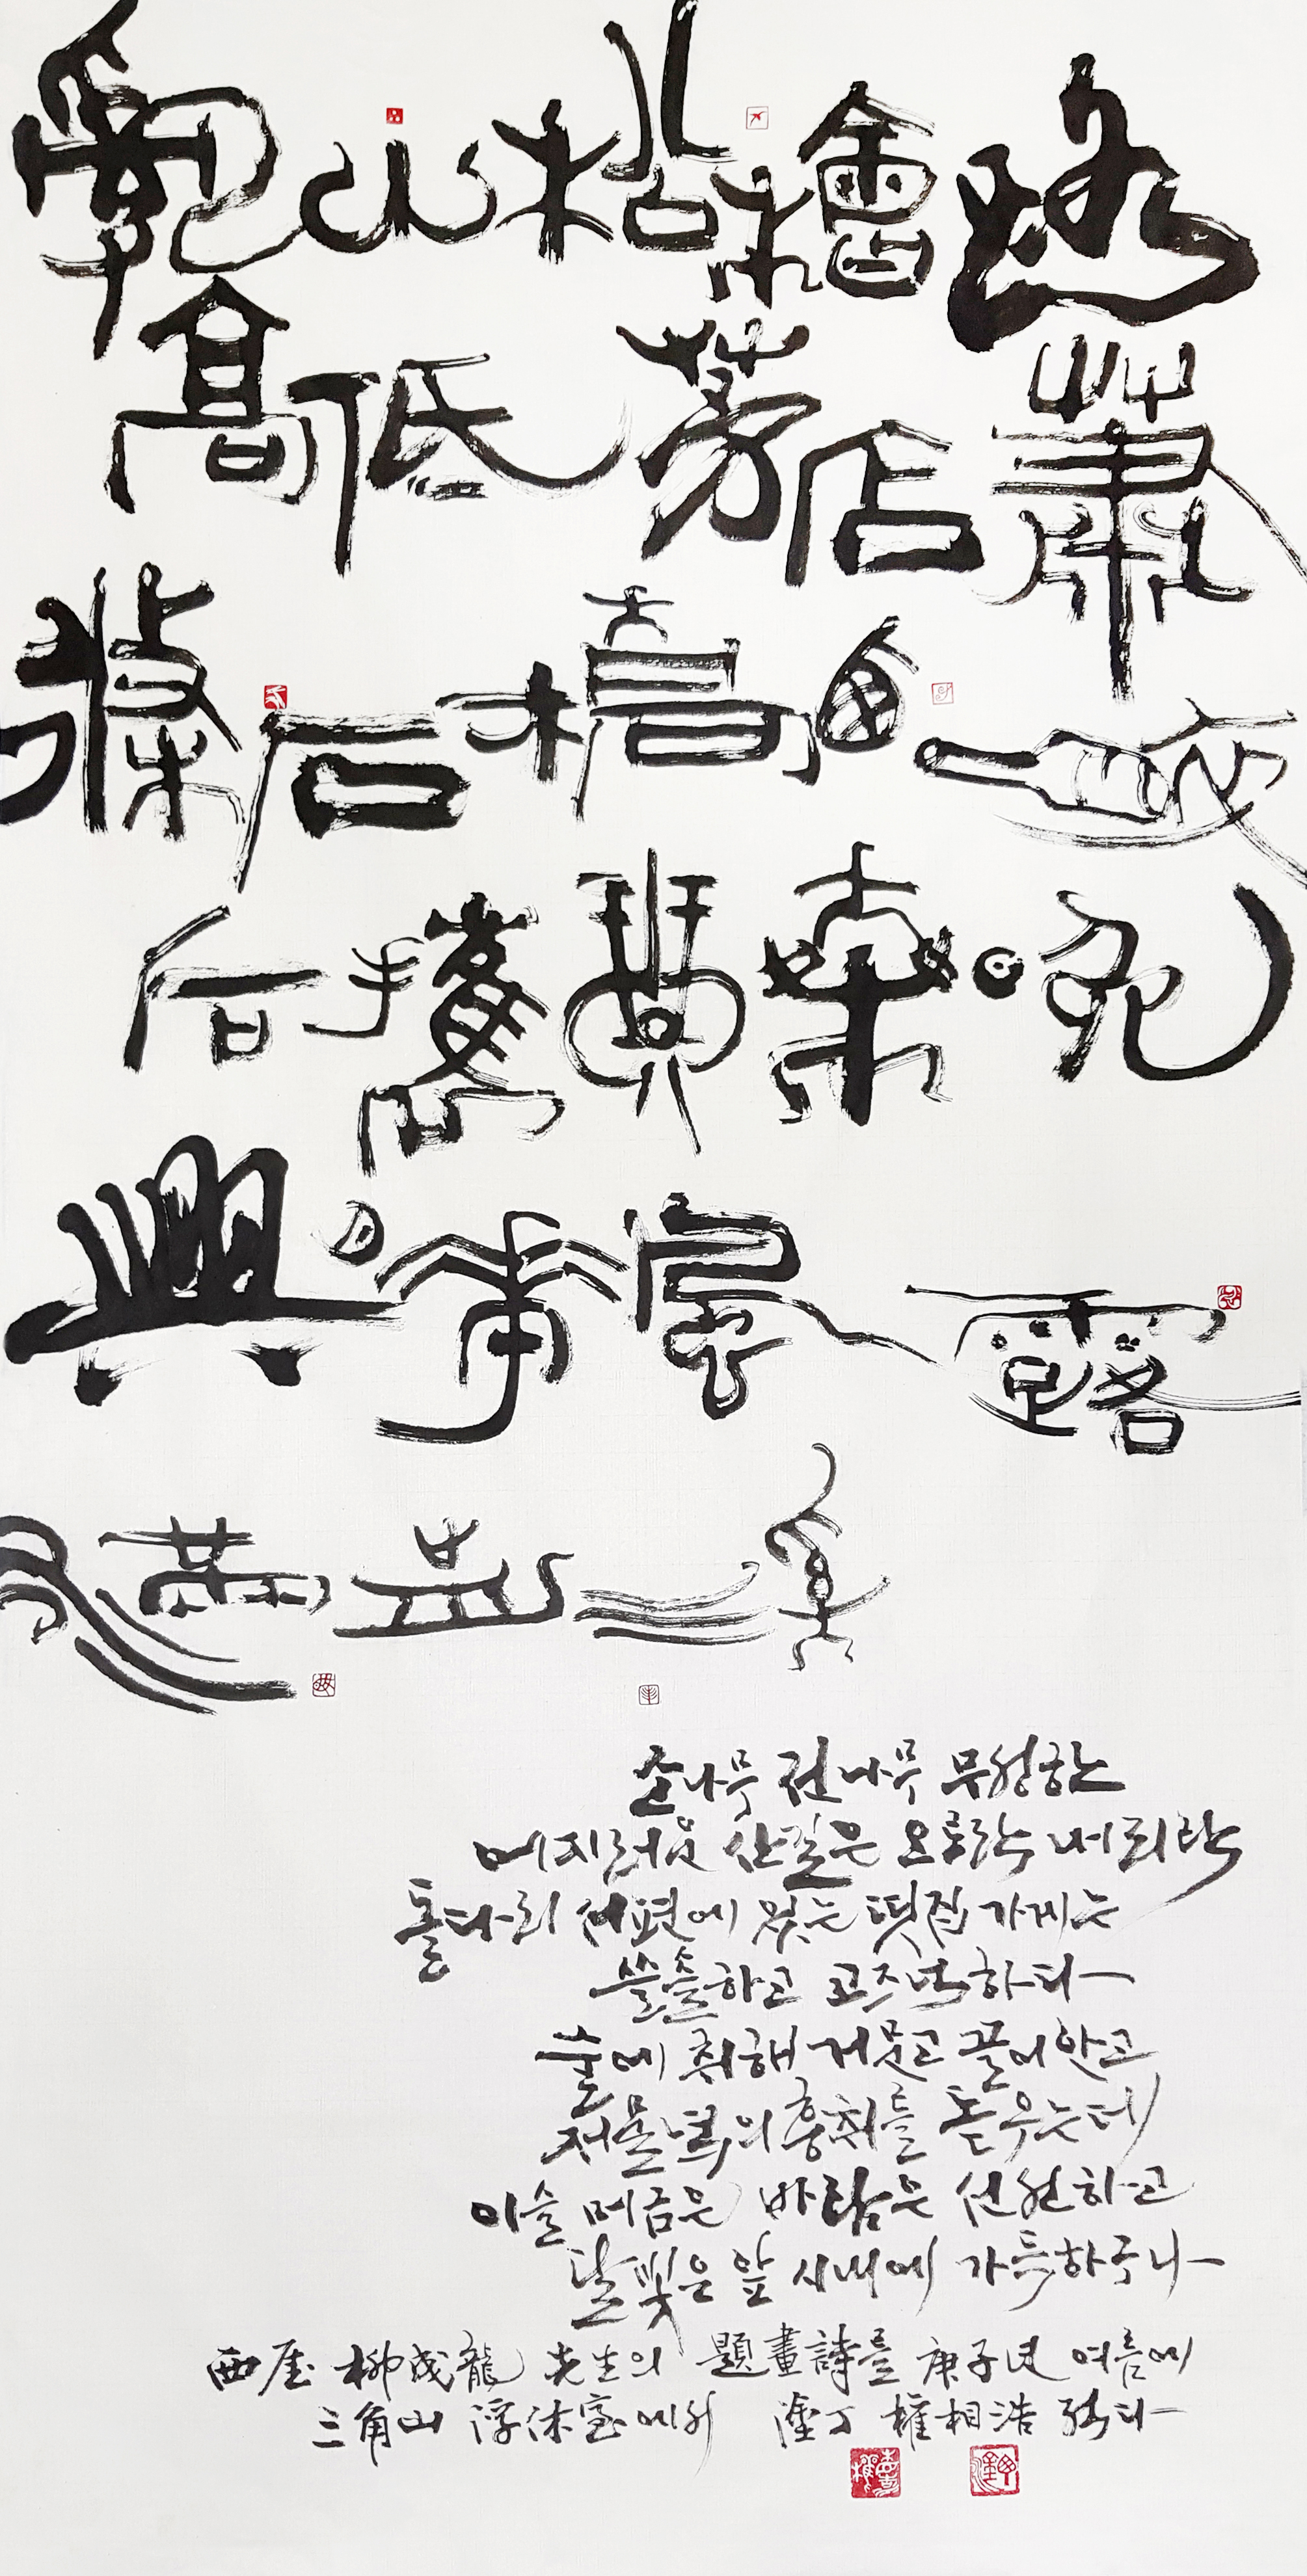 亂山松檜路
高低茅店蕭
條石橋西醉
后携琴乘晩
興月帶風露
滿前溪
소나무 전나무 무성한
어지러운 산길은 오르락 내리락
돌다리 서편에 있는 띳집 가게는
쓸쓸하고 고즈넉하다
술에 취해 거문고 끌어안고
저물녘의 흥취를 돋우는데
이슬 머금은 바람은 선선하고
달빛은 앞 시내에 가득하구나
西厓 柳成龍 先生의 題畫詩를 庚子년 여름에
三角山 浮休室에서 塗丁 權相浩 쓰다